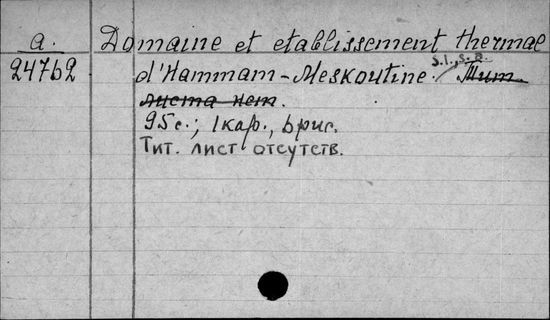 a. Domaine et etablissement thermal
24762 d'Hammam-Meskoutine. S.l., s.a. Тит.
листа нет.
95 с.; 1 кар., 6 рис.
Тит. лист отсутств.